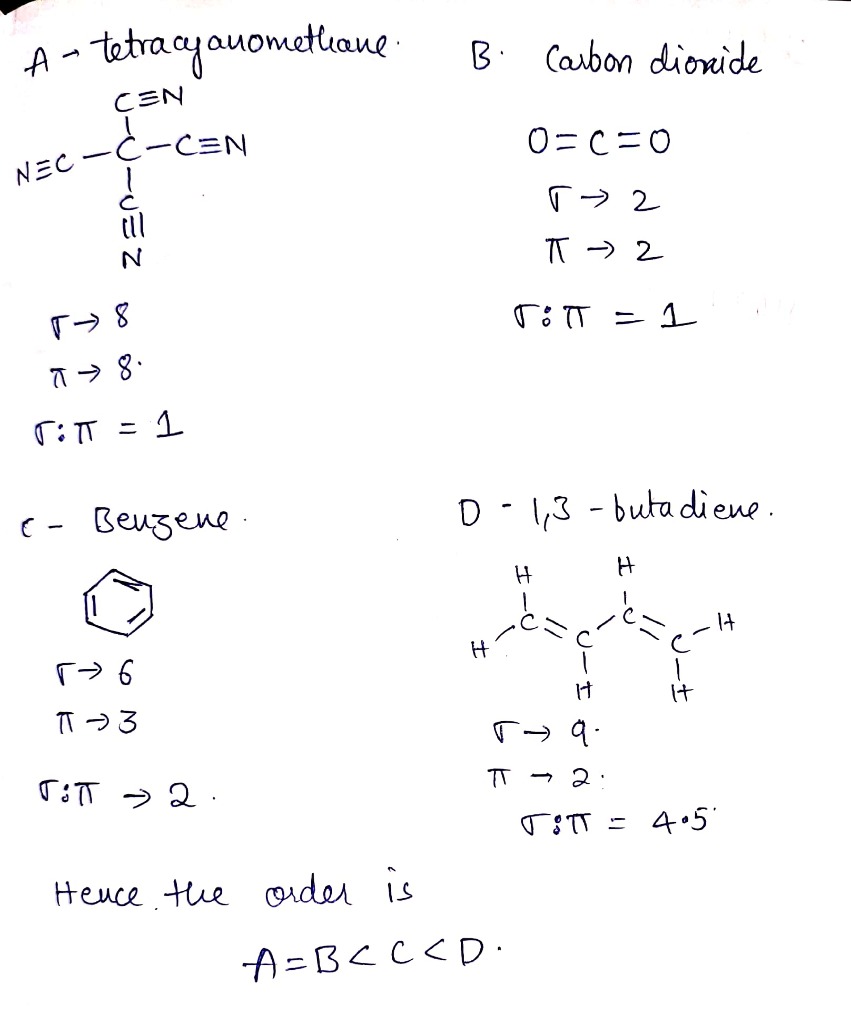 A - tetracyanomethane.
C≡N
N≡C-C-C≡N
C
≡
N
σ → 8
π → 8.
σ:π = 1
B. Carbon dioxide
O=C=O
σ → 2
π → 2
σ:π = 1
C - Benzene.
σ → 6
π → 3
σ:π → 2.
D - 1,3-butadiene.
H H
C=C-C=C-H
H
H H
σ → 9.
π → 2.
σ:π = 4.5
Hence the order is
A=B<C<D.